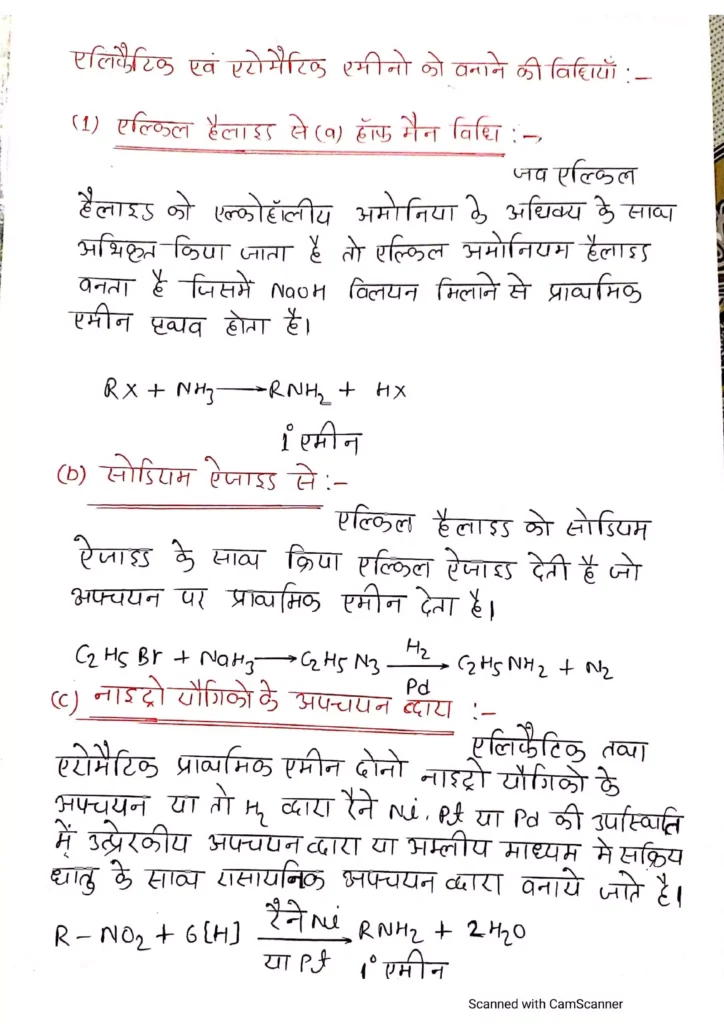 एलिफैटिक एवं एरोमैटिक एमीनो को बनाने की विधियाँ :-
(1) एल्किल हैलाइड से (a) हॉफ मैन विधि :-
जब एल्किल
हैलाइड को एल्कोहॉलीय अमोनिया के अधिक्य के साथ
अभिकृत किया जाता है तो एल्किल अमोनियम हैलाइड
बनता है जिसमें NaOH विलयन मिलाने से प्राथमिक
एमीन होता है।
RX + NH3 → RNH2 + HX
1° एमीन
(b) सोडियम ऐजाइड से :-
एल्किल हैलाइड को सोडियम
ऐजाइड के साथ क्रिया एल्किल ऐजाइड देती है जो
अपचयन पर प्राथमिक एमीन देता है।
H2
C2H5Br + NaH3 → C2H5N3 → C2H5NH2 + N2
Pd
(c) नाइट्रो यौगिको के अपचयन द्वारा :-
एलिफैटिक तथा
एरोमैटिक प्राथमिक एमीन दोनो नाइट्रो यौगिको के
अपचयन या तो H2 द्वारा रैने Ni, Pt या Pd की उपस्थिति
में उत्प्रेरकीय अपचयन द्वारा या अम्लीय माध्यम मे सक्रिय
धातु के साथ रासायनिक अपचयन द्वारा बनाये जाते है।
रैने Ni
R - NO2 + 6[H] → RNH2 + 2H2O
या Pt 1° एमीन
Scanned with CamScanner